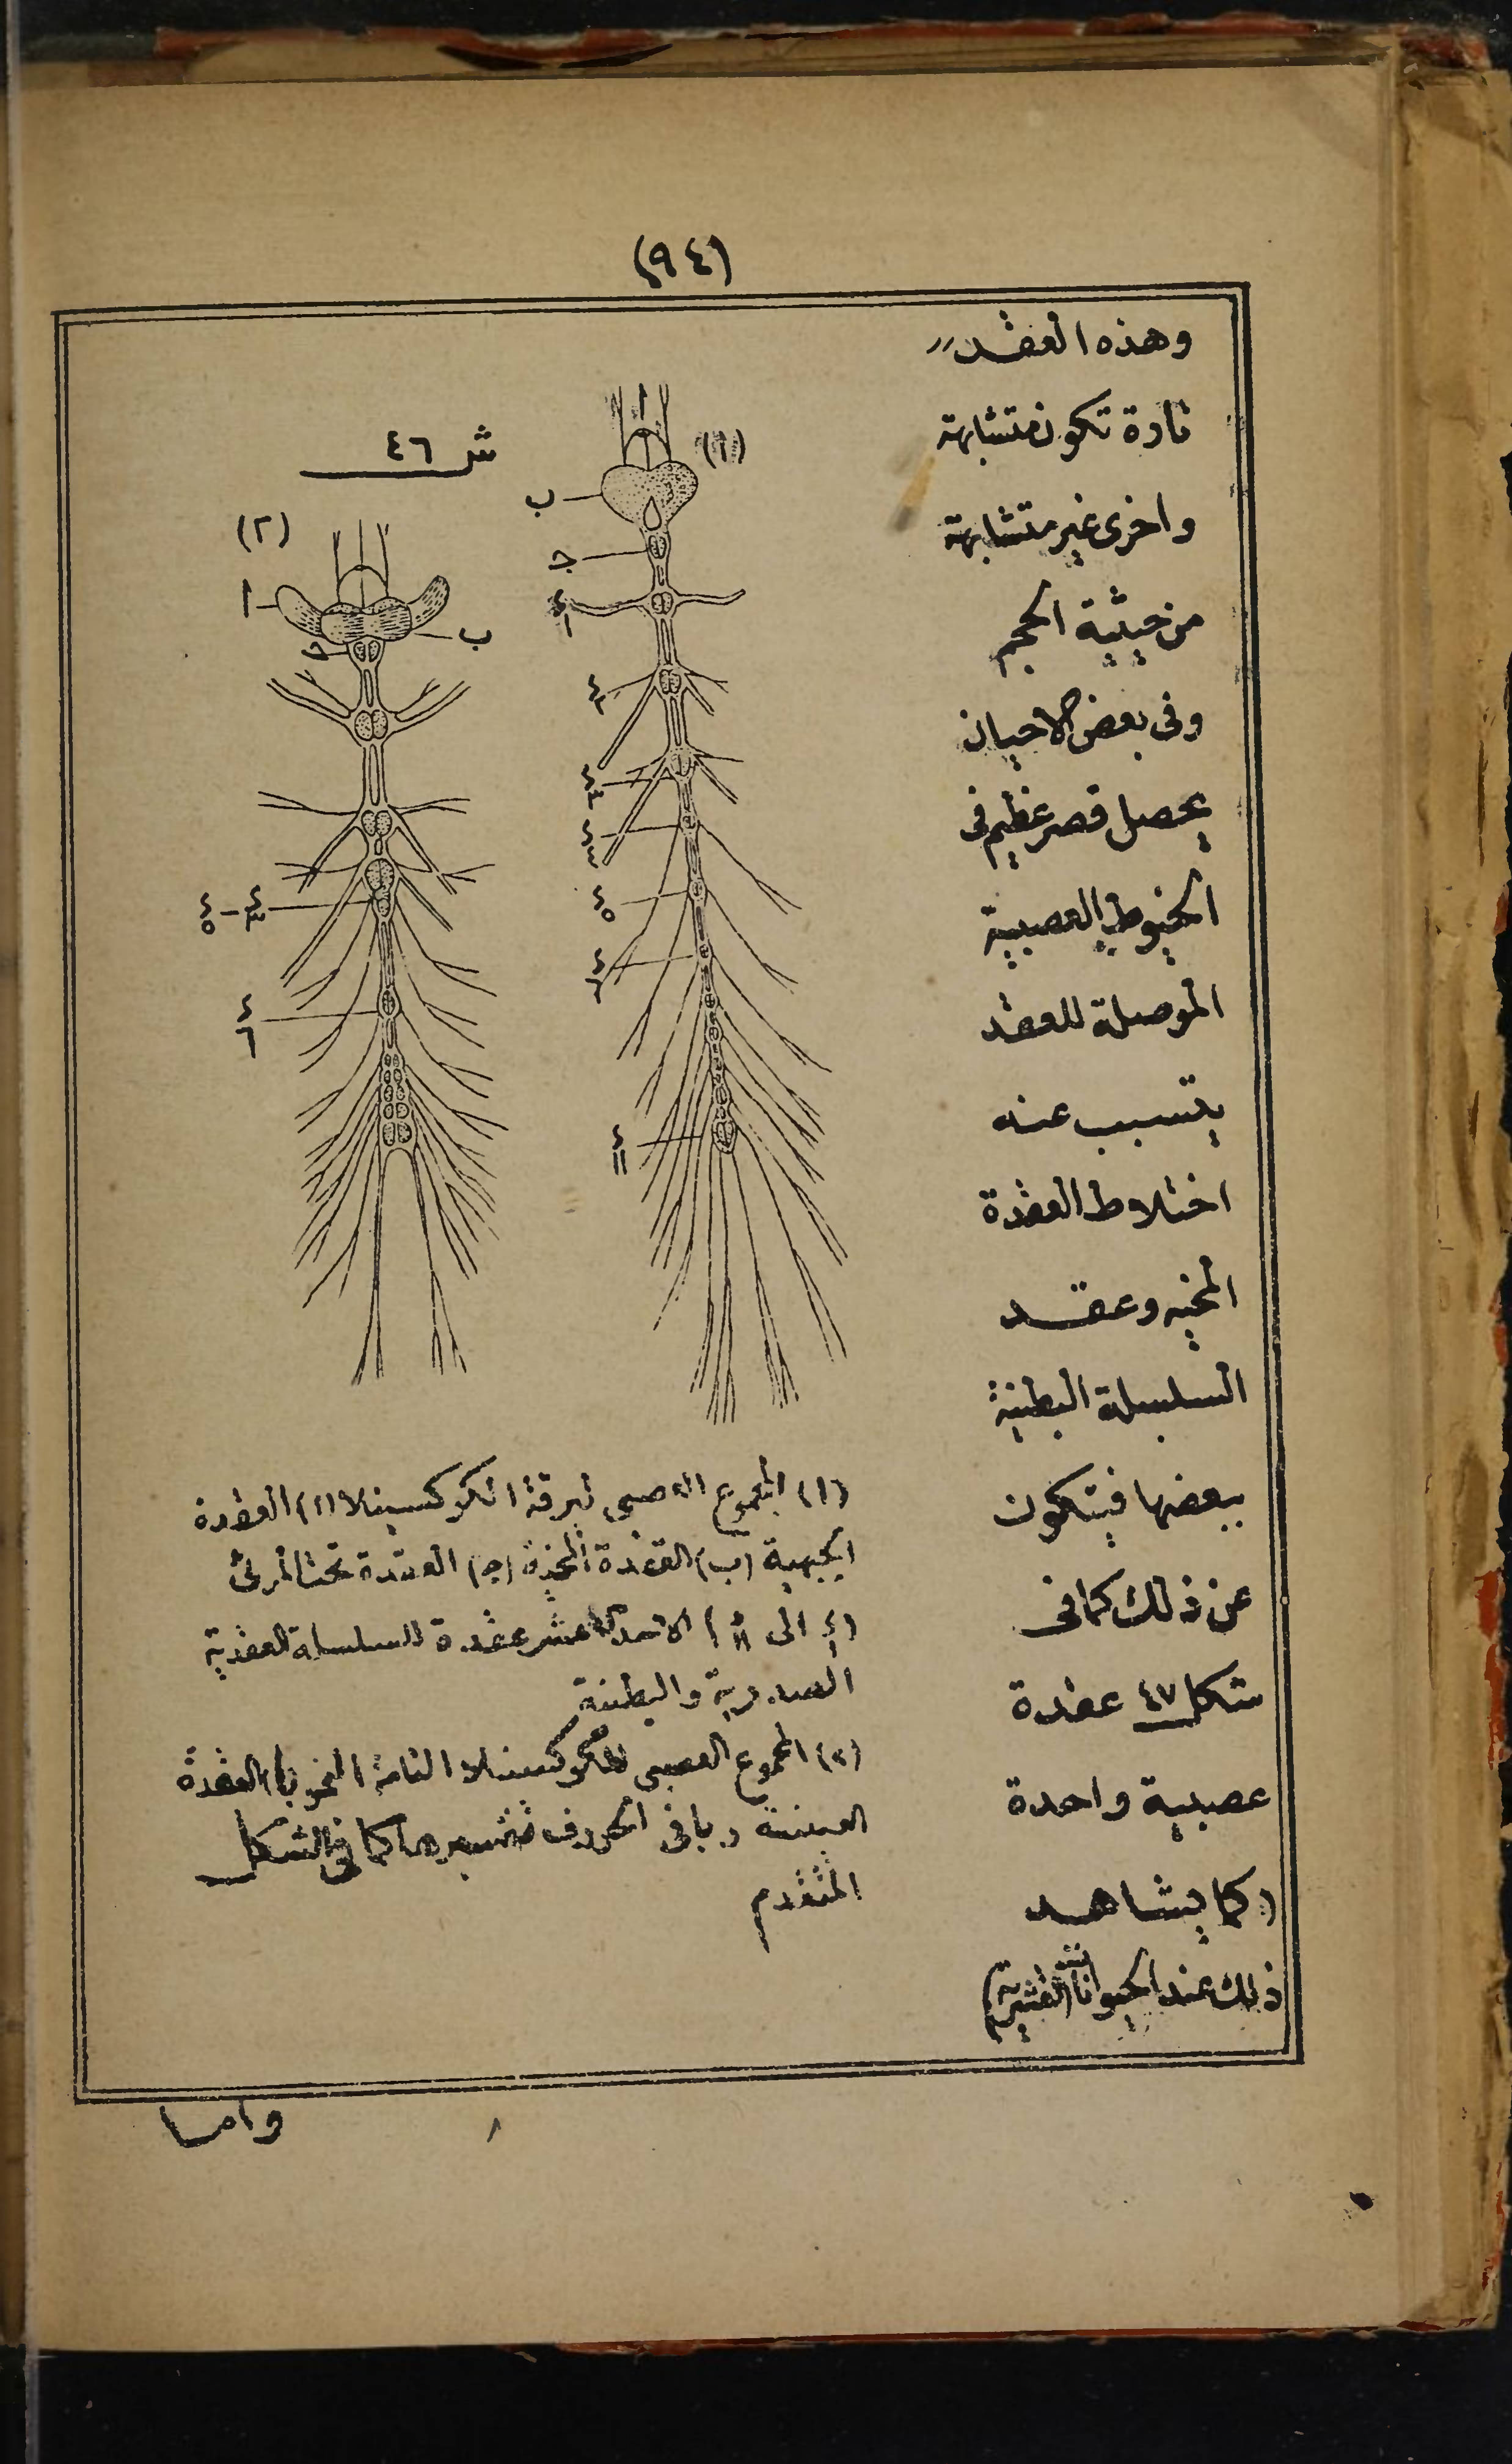 (٩٤)
وهذه العقد
تارة تكون متشابهة
واخرى غير متشابهة
من حيثية الحجم
وفى بعض الاحيان
يحصل قصر عظيم فى
الخيوط العصبية
الموصلة للعقد
يتسبب عنه
اختلاط العقدة
المخيه وعقد
السلسلة البطنية
ببعضها فيتكون
عن ذلك كما فى
شكل ٤٧ عقدة
عصبية واحدة
(كما يشاهد
ذلك عند الحيوانات القشرية)
ش ٤٦
(١)
ا
ب
ج
٤
١
٤
٢
٤
٣
٤
٥
٤
٦
٤
١١
(٢)
ا
ب
ج
٤
٣
—
٤
٥
٤
٦
(١) المجموع العصبى ليرقة الكوكسينلا (ا) العقدة
الجبهية (ب) العقدة المخية (ج) العقدة تحت المرئ
الى الاحدى عشر عقدة للسلسلة العقدية
الصدرية والبطنية
(٢) المجموع العصبى للكوكسينلا التامة النمو (ا) العقدة
العينية وباقى الحروف تفسيرها كما فى الشكل
المتقدم
واما